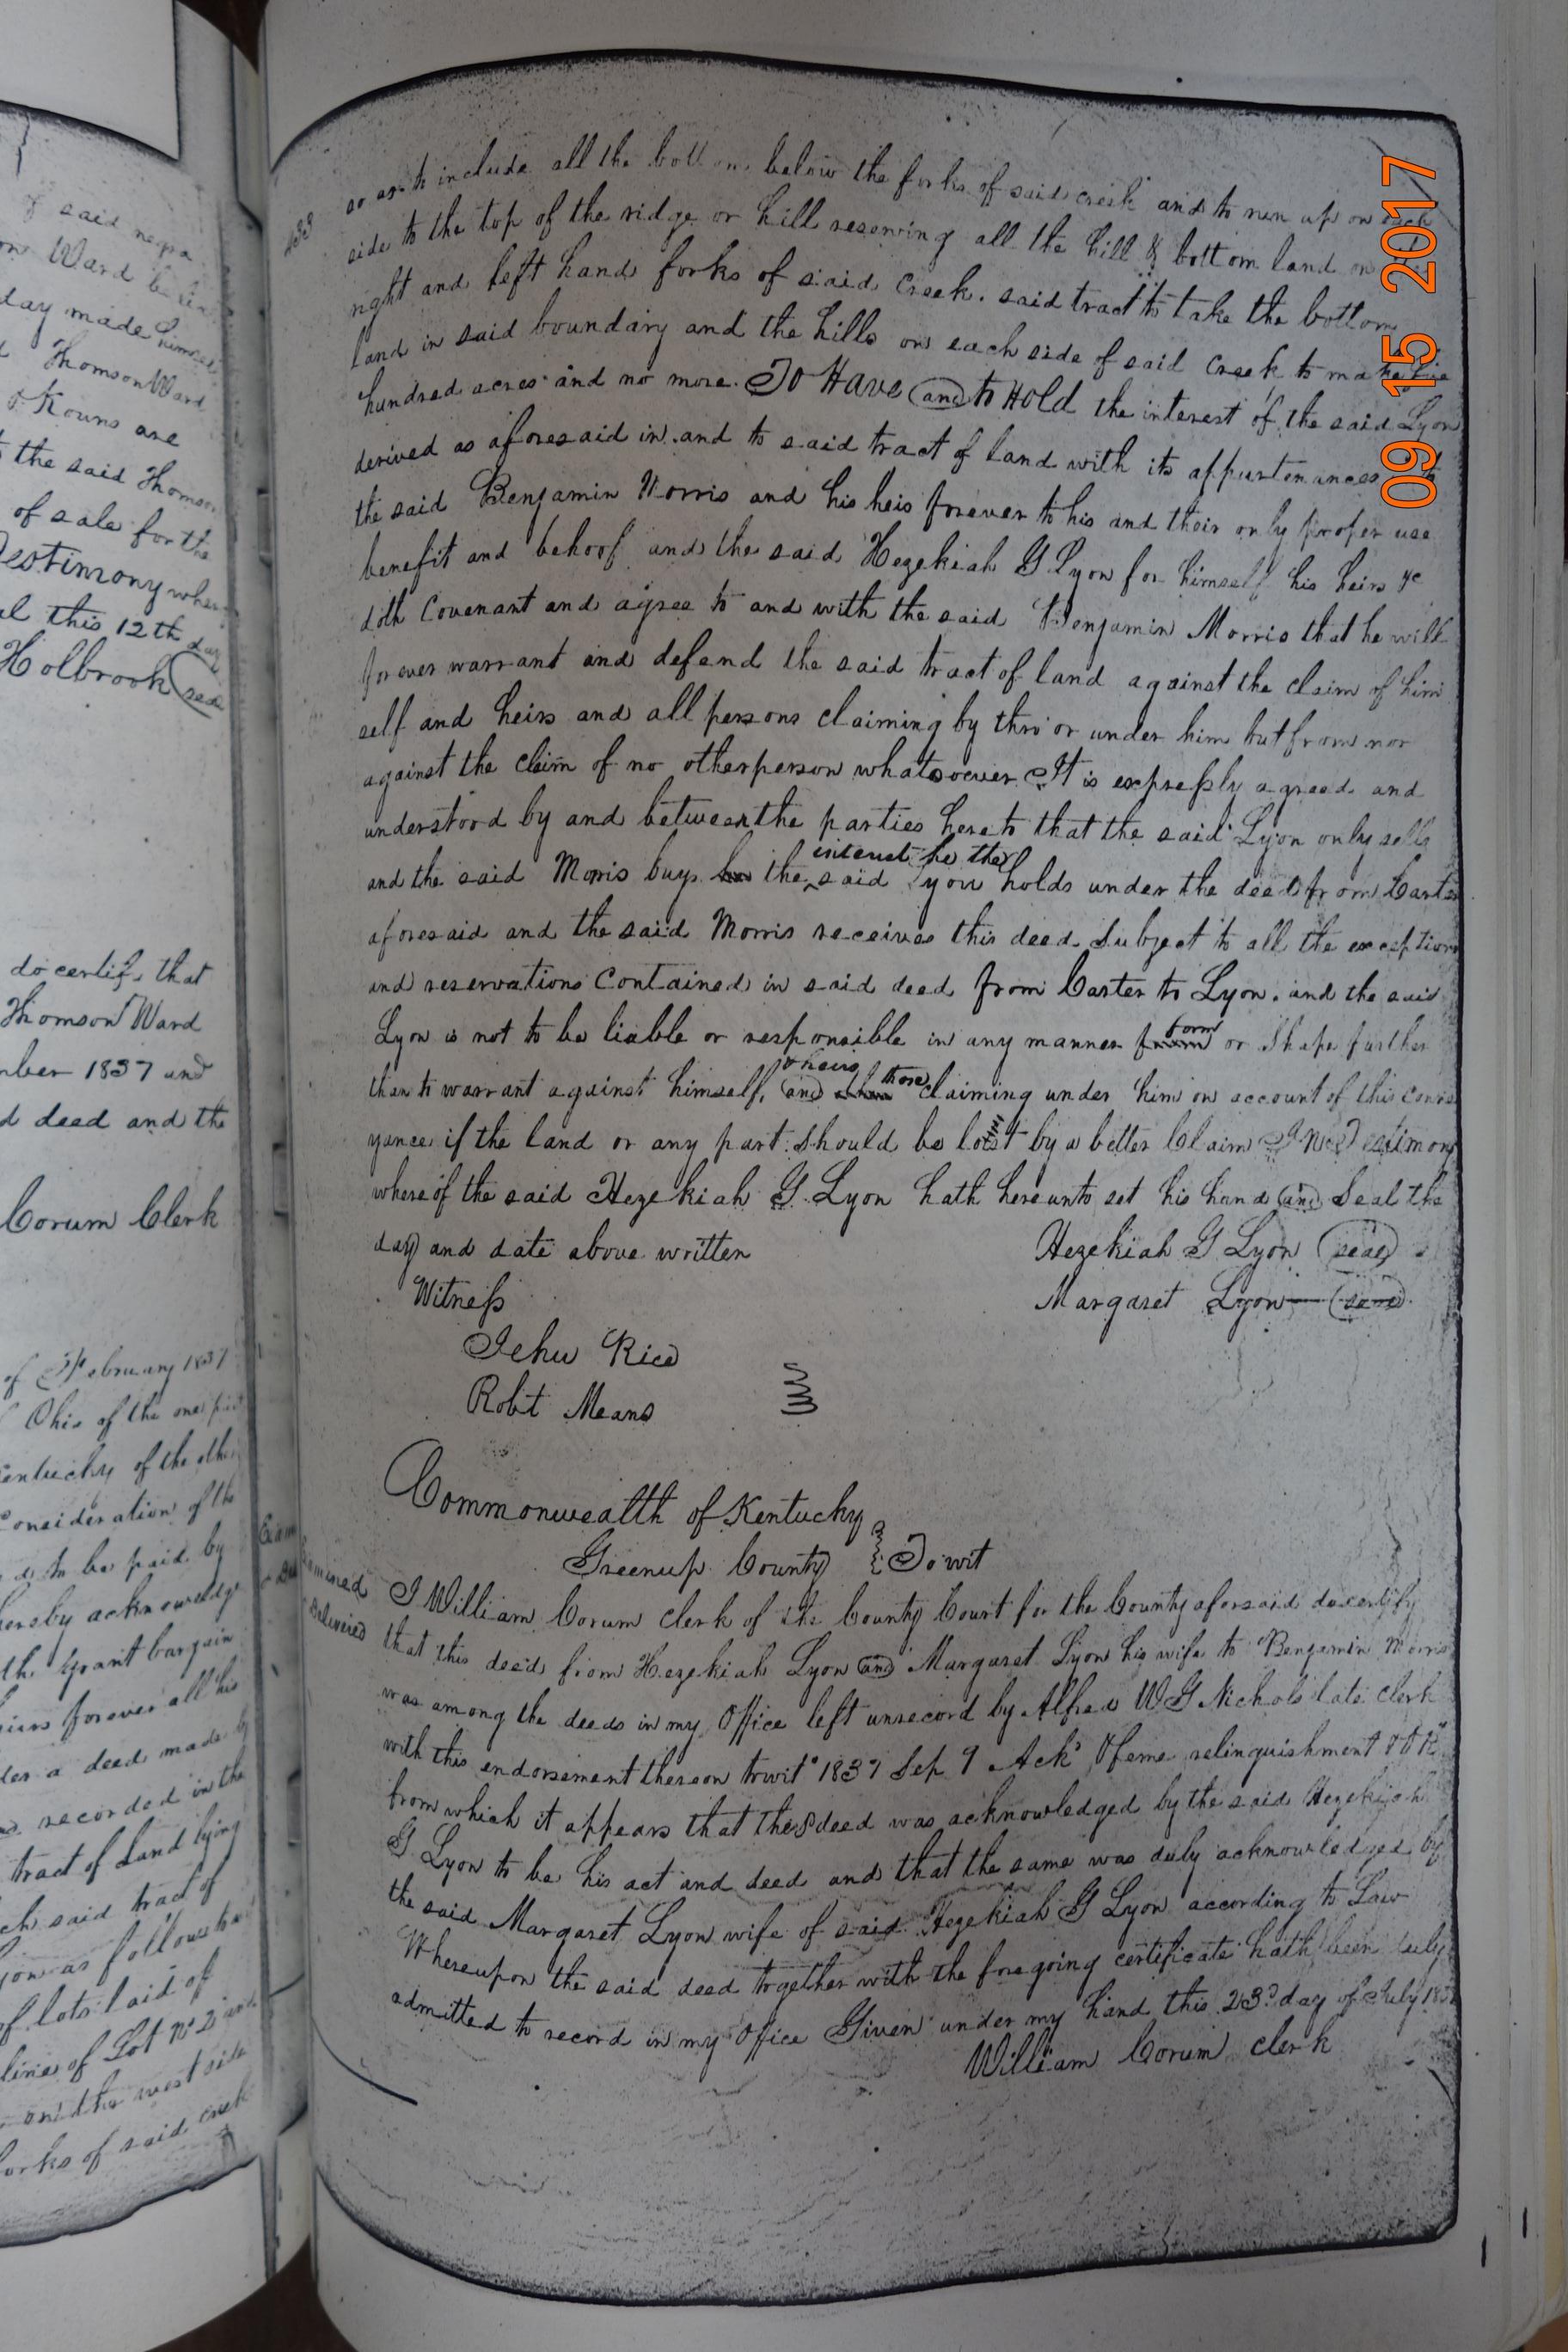 of said negro
Ward
day made himself
Thomson Ward
& Kouns are
the said Thomson
of sale for the
Testimony where
this 12th day
Holbrook (seal
do certify that
Thomson Ward
1837 and
deed and the
Corum Clerk
of February 1837
Ohio of the one part
Kentucky of the other
Consideration of the
to be paid by
hereby acknowledge
grant bargain
heirs forever all his
a deed made by
recorded in the
tract of Land lying
said tract of
as follows to
of lots laid of
line of Lot No 2 and
on the west side
forks of said creek
so as to include all the bottom below the forks of said creek and to run up on each
side to the top of the ridge or hill reserving all the hill & bottom land on
right and left hand forks of said Creek. said tract to take the bottom
land in said boundary and the hills on each side of said Creek to make five
hundred acres and no more. To Have and to Hold the interest of the said Lyon
derived as aforesaid in and to said tract of land with its appurtenances to
the said Benjamin Morris and his heis forever to his and their only proper use
benefit and behoof and the said Hezekiah G Lyon for himself his heirs &c
doth Covenant and agree to and with the said Benjamin Morris that he will
forever warrant and defend the said tract of land against the claim of him
self and heirs and all persons claiming by thro or under him but from nor
against the claim of no other person whatsoever It is expressly agreed and
understood by and between the parties hereto that the said Lyon only sells
and the said Morris buys the interest he the said Lyon holds under the deed from Carter
aforesaid and the said Morris receives this deed Subject to all the exceptions
and reservations Contained in said deed from Carter to Lyon. and the said
Lyon is not to be liable or responsible in any manner form or Shape further
than to warrant against himself, & heirs and those claiming under him on account of this conve
yance if the land or any part should be lost by a better Claim In Testimony
whereof the said Hezekiah G. Lyon hath hereunto set his hand and Seal the
day and date above written Hezekiah G Lyon (seal)
Witness Margaret Lyon (seal)
Jehu Rice
Robt Means
Commonwealth of Kentucky
Greenup County } To wit
Examined
Delivered
I William Corum clerk of the County Court for the County aforsaid do certify
that this deed from Hezekiah Lyon and Margaret Lyon his wife to Benjamin Morris
was among the deeds in my Office left unrecord by Alfred W G Nichols late clerk
with this endorsement thereon towit "1837 Sep 9 Ackd & feme relinquishment & O R"
from which it appears that the deed was acknowledged by the said Hezekiah
G Lyon to be his act and deed and that the same was duly acknowledged by
the said Margaret Lyon wife of said Hezekiah G Lyon according to Law
Whereupon the said deed together with the foregoing certificate hath been duly
admitted to record in my Office Given under my hand this 23d day of July
William Corum clerk
09 15 2017